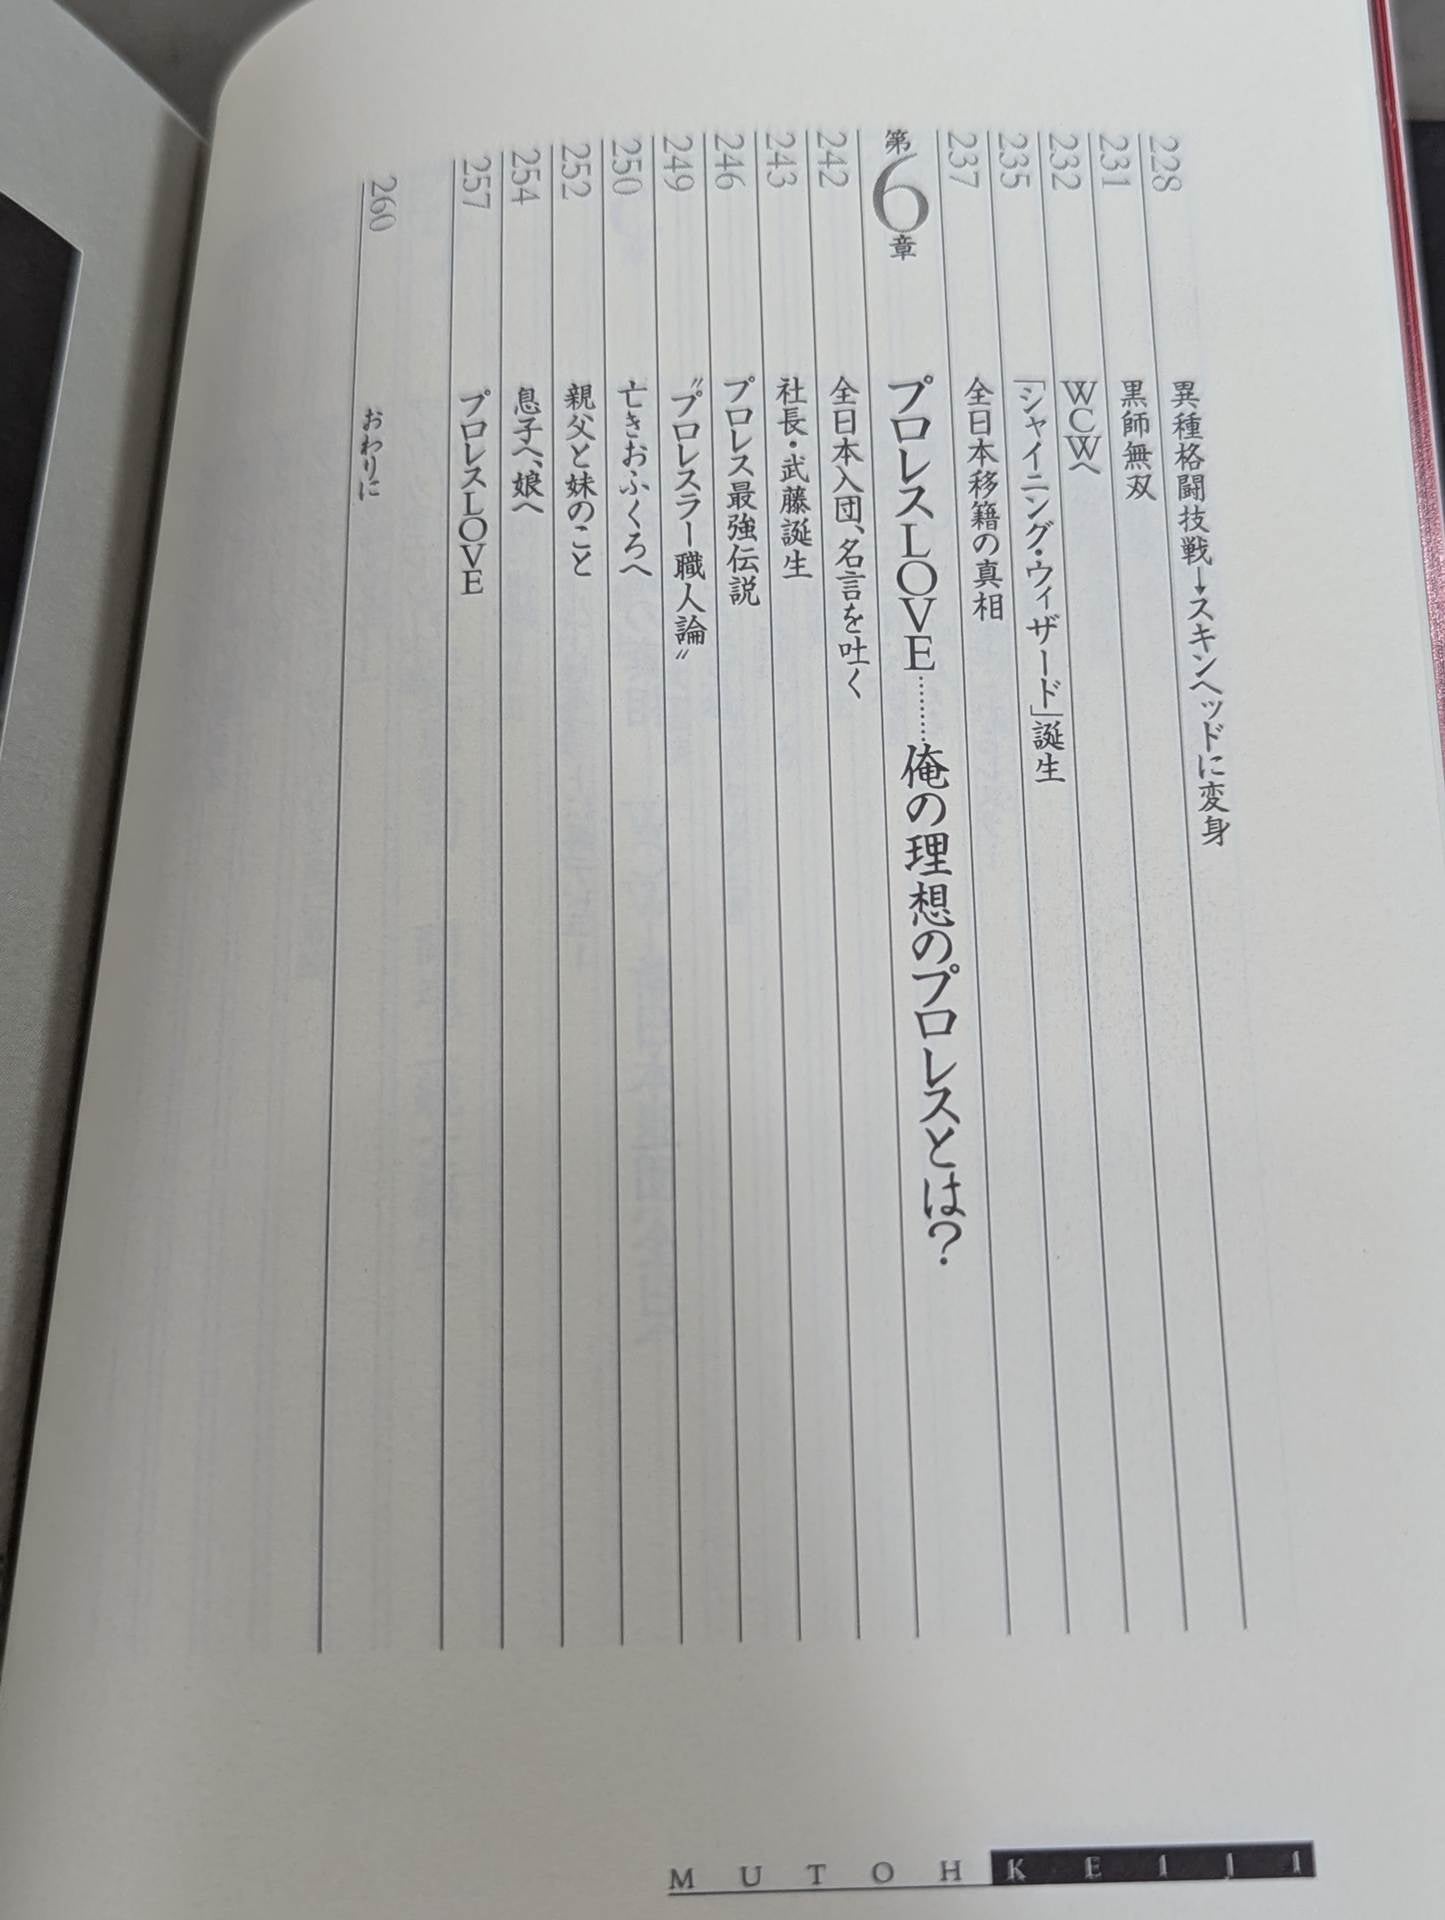 228 異種格闘技戦→スキンヘッドに変身
231 黒師無双
232 WCWへ
235 「シャイニング・ウィザード」誕生
237 全日本移籍の真相
第6章 プロレスLOVE……俺の理想のプロレスとは?
242 全日本入団、名言を吐く
243 社長・武藤誕生
246 プロレス最強伝説
249 〝プロレスラー職人論〟
250 亡きおふくろへ
252 親父と妹のこと
254 息子へ、娘へ
257 プロレスLOVE
260 おわりに
MUTOH KEIJI